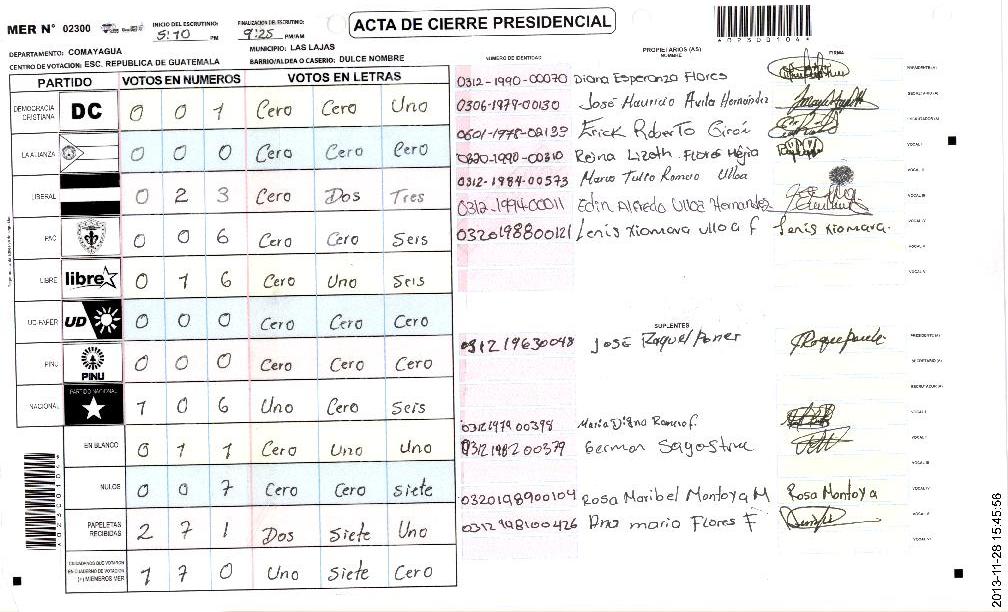 ACTA DE CIERRE PRESIDENCIAL
MER N° 02300
INICIO DEL ESCRUTINIO: 5:10 PM
FINALIZACION DEL ESCRUTINIO: 9:25 PM/AM
DEPARTAMENTO: COMAYAGUA
MUNICIPIO: LAS LAJAS
CENTRO DE VOTACION: ESC. REPUBLICA DE GUATEMALA
BARRIO/ALDEA O CASERIO: DULCE NOMBRE
PARTIDO VOTOS EN NUMEROS VOTOS EN LETRAS
DEMOCRACIA CRISTIANA DC 0 0 1 Cero Cero Uno
LA ALIANZA 0 0 0 Cero Cero Cero
LIBERAL 0 2 3 Cero Dos Tres
PAC 0 0 6 Cero Cero Seis
LIBRE libre 0 1 6 Cero Uno Seis
UD-FAPER UD 0 0 0 Cero Cero Cero
PINU PINU 0 0 0 Cero Cero Cero
NACIONAL PARTIDO NACIONAL 1 0 6 Uno Cero Seis
EN BLANCO 0 1 1 Cero Uno Uno
NULOS 0 0 7 Cero Cero Siete
PAPELETAS RECIBIDAS 2 7 1 Dos Siete Uno
CIUDADANOS QUE VOTARON EN CUADERNO DE VOTACION (+) MIEMBROS MER 1 7 0 Uno Siete Cero
NUMERO DE IDENTIDAD PROPIETARIOS (AS) NOMBRE FIRMA
0312-1990-00070 Diana Esperanza Flores PRESIDENTE (A)
0306-1979-00130 José Mauricio Avila Hernández SECRETARIO (A)
0601-1978-02133 Erick Roberto ESCRUTADOR (A)
0320-1990-00310 Reina Lizeth Flores Mejia VOCAL I
0312-1984-00573 Mario Tulio Romero Ulloa VOCAL II
0312-1994-00011 Edin Alfredo Ulloa Hernandez VOCAL III
0320198800121 Lenis Xiomara Ulloa F Lenis Xiomara. VOCAL IV
VOCAL V
VOCAL VI
SUPLENTES
031219630048 José Raquel PRESIDENTE (A)
SECRETARIO (A)
ESCRUTADOR (A)
0312197900398 Maria Digna Romero f. VOCAL I
0312198200379 German Sagastume VOCAL II
VOCAL III
0320198900104 Rosa Maribel Montoya M Rosa Montoya VOCAL IV
0312198100426 Ana maria Flores F VOCAL V
VOCAL VI
2013-11-28 15:45:56